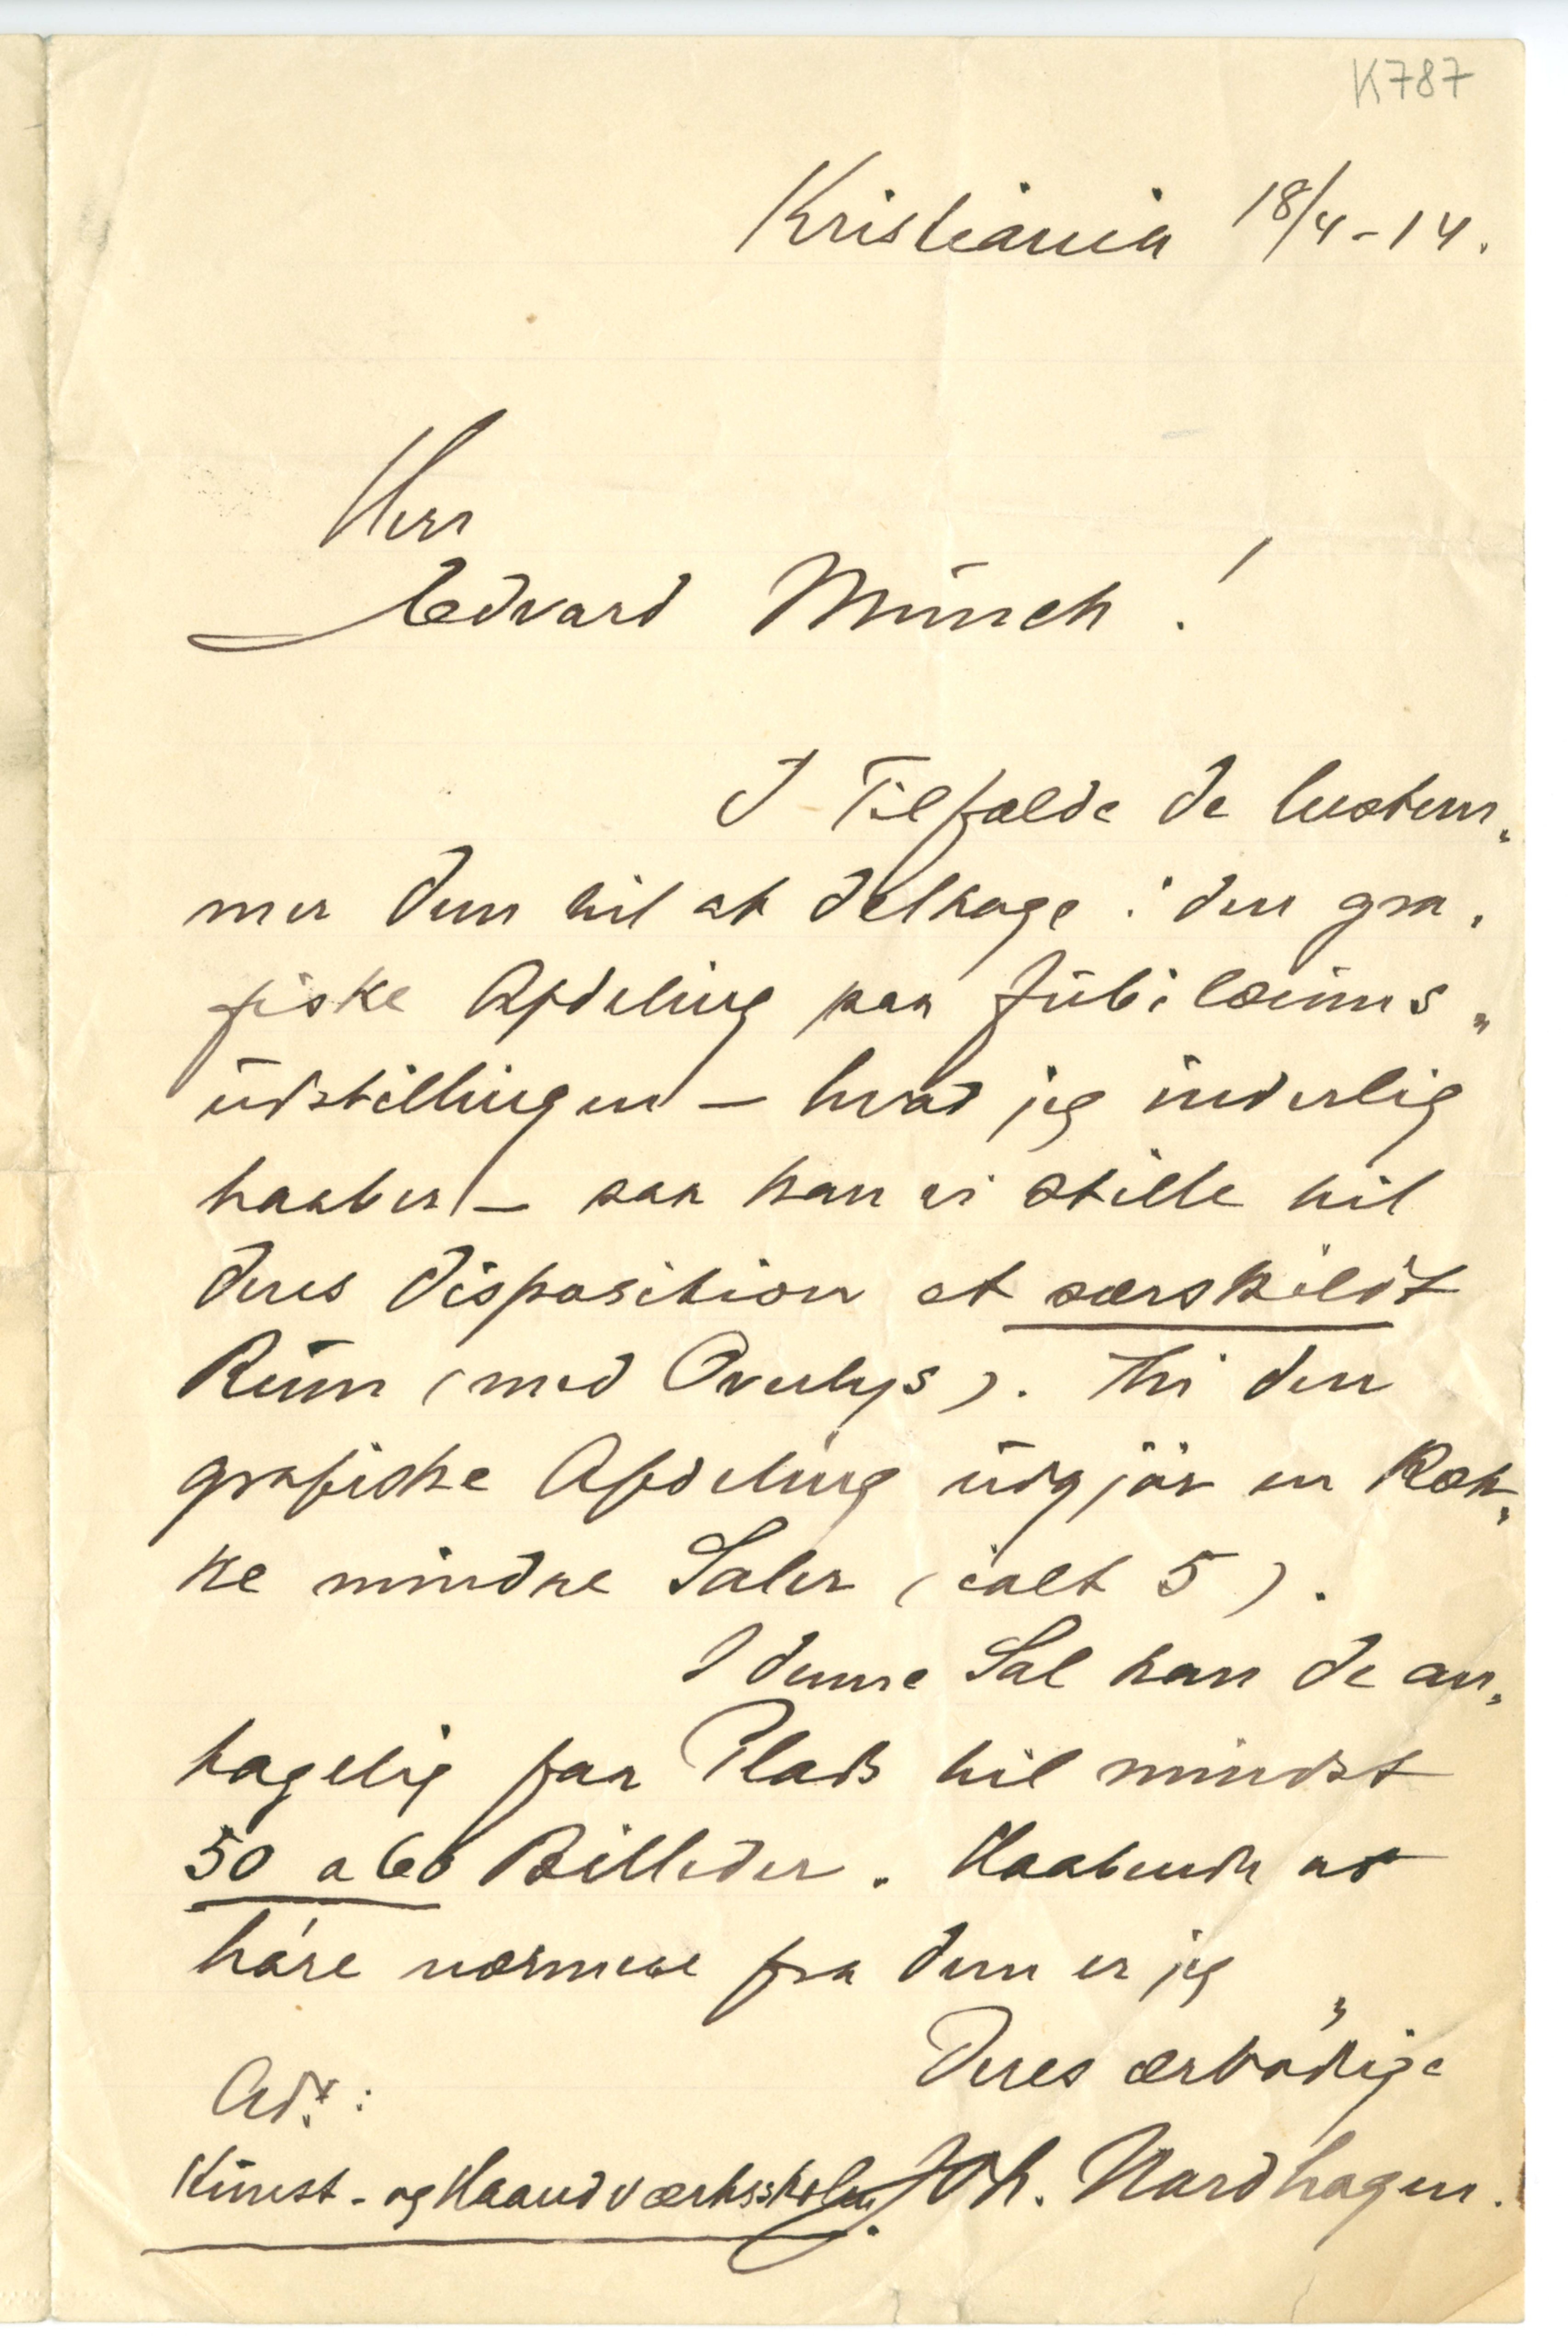 K787
Kristiania 18/4-14.
Herr
Edvard Munch!
I Tilfælde De bestem„
mer Dem til at deltage i den gra„
fiske Afdeling paa Jubilæums„
udstillingen – hvad jeg inderlig
haaber – saa kan vi stille til
Deres Disposition et særskildt
Rum (med Overlys). Thi den
grafiske Afdeling udgjör en Ræk„
ke mindre Saler (ialt 5).
I denne Sal kan De an„
tagelig faa Plads til mindst
50 a 60 Billeder. Haabende at
höre nærmere fra Dem er jeg
Deres ærbödige
Adr.:
Kunst- og Haandværksskolen. Joh. Nordhagen.